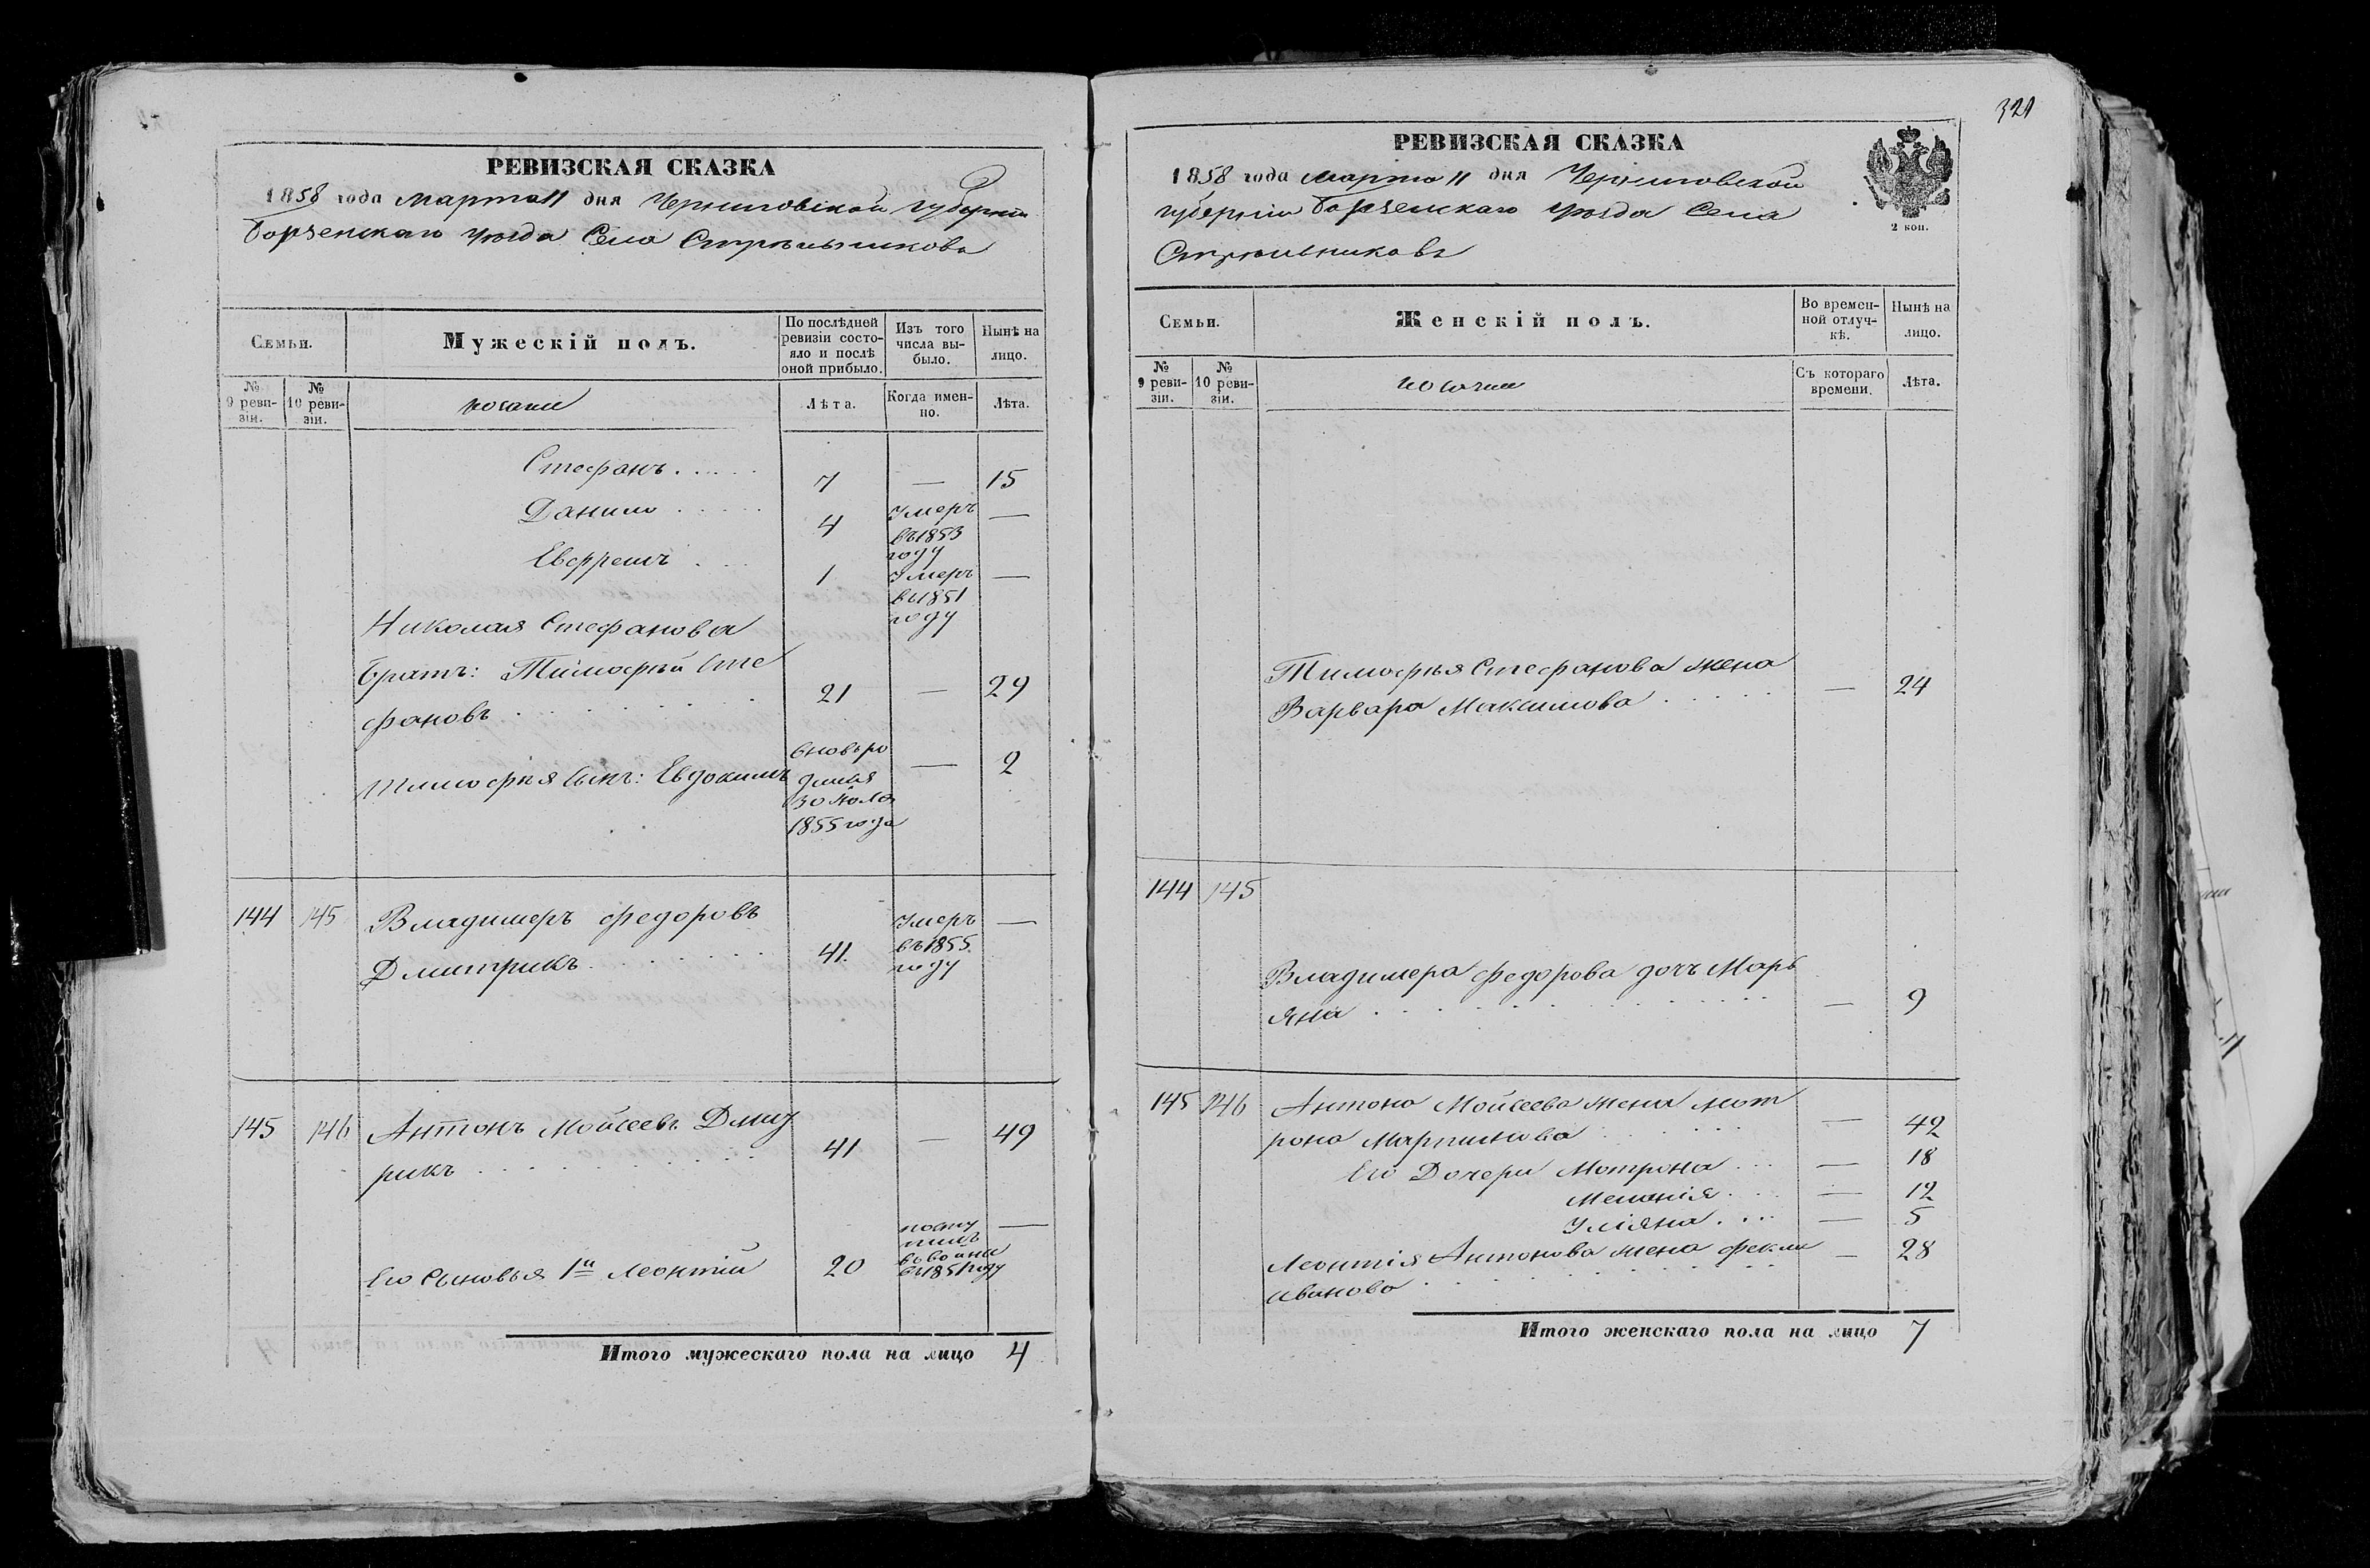 321
РЕВИЗСКАЯ СКАЗКА
1858 года Марта 11 дня Черниговской губернии
Борзенскаго уезда Села Стрельникова
Семьи.
Мужескій полъ.
По послѣдней
ревизіи состо-
яло и послѣ
оной прибыло.
Изъ того
числа вы-
было.
Нынѣ на
лицо.
№
9 реви-
зіи.
№
10 реви-
зіи.
Лѣта.
Когда имен-
но.
Лѣта.
Стефанъ . . . . . 7 — 15
Данило . . . . . 4 Умеръ —
въ 1853
году
1 Умеръ —
въ 1851
году
Николая Стефанова
братъ: Тимофѣй Сте
фановъ . . . . . 21 — 29
Тимофѣя сынъ: Евдокимъ
вновь ро
— 2
1855 года
144 145 Владимеръ Федоровъ
Дмитрикъ . . . . . 41 Умеръ —
въ 1855
году
145 146 Антонъ Мойсеевъ Дмит
рикъ . . . . . 41 — 49
Его Сыновья 1й Леонтій 20 посту —
пилъ
въ 1851 году
Итого мужескаго пола на лицо 4
РЕВИЗСКАЯ СКАЗКА
1858 года Марта 11 дня Черниговской
губерніи Борзенскаго уезда Села
Стрельниковъ
2 коп.
Семьи.
Женскій полъ.
Во времен-
ной отлуч-
кѣ.
Нынѣ на
лицо.
№
9 реви-
зіи.
№
10 реви-
зіи.
Съ котораго
времени.
Лѣта.
Тимофѣя Стефанова жена
Варвара Максимова . . . . . — 24
144 145
Владимера Федорова дочь Марь
яна . . . . . — 9
145 146 Антона Мойсеева жена Мот
рона Мартинова . . . . . — 42
Его Дочери Мотрона . . . — 18
Меланія . . . — 12
Уліяна . . . — 5
Леонтія Антонова жена Фекла — 28
Иванова . . . . .
Итого женскаго пола на лицо 7